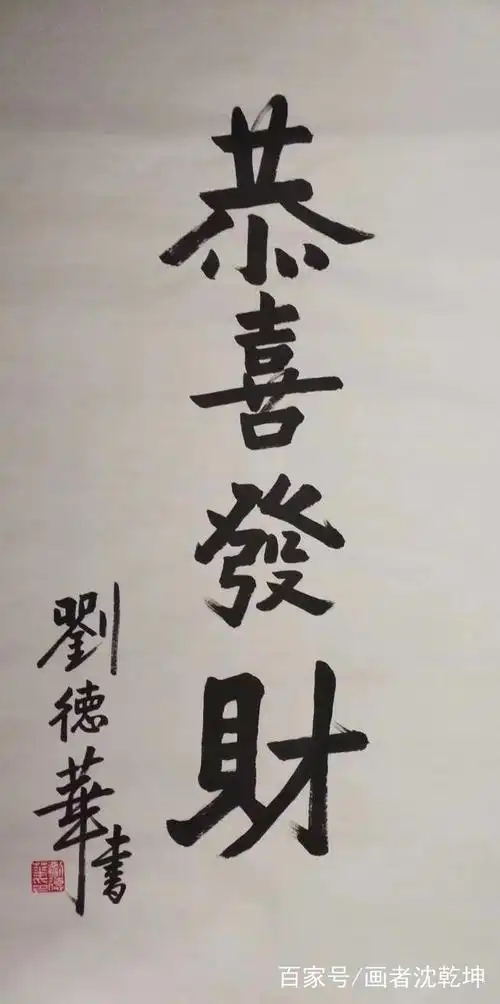 恭喜發財
劉德華書
百家号/画者沈乾坤